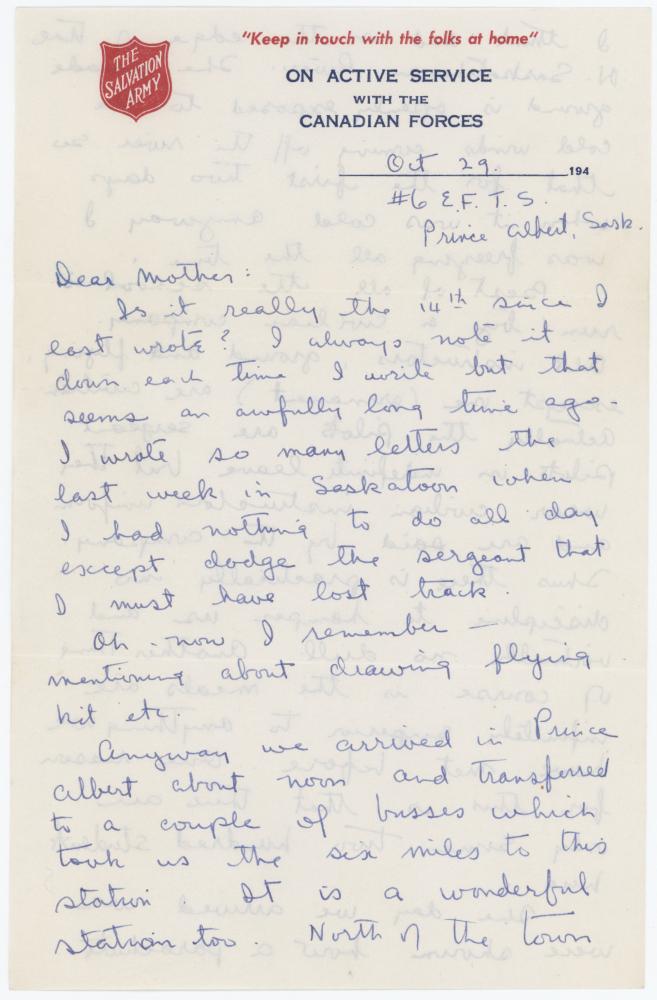 THE
SALVATION
ARMY
"Keep in touch with the folks at home"
ON ACTIVE SERVICE
WITH THE
CANADIAN FORCES
Oct 29 194
#6 E.F.T.S.
Prince Albert, Sask.
Dear Mother:
Is it really the 14th since I
last wrote? I always note it
down each time I write but that
seems an awfully long time ago.
I wrote so many letters the
last week in Saskatoon when
I had nothing to do all day
except dodge the sergeant that
I must have lost track.
Oh - now I remember -
mentioning about drawing flying
kit etc.
Anyway we arrived in Prince
Albert about noon and transferred
to a couple of busses which
took us the six miles to this
station. It is a wonderful
station too. North of the town